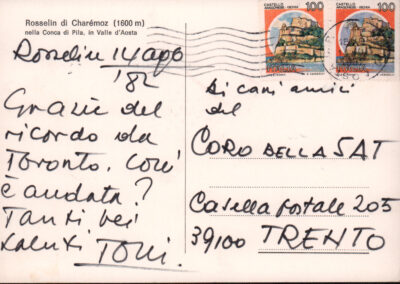 Rosselin di Charémoz (1600 m)
nella Conca di Pila, in Valle d'Aosta
Rosselin 14 ago
'82
Grazie del
ricordo da
Toronto. Com'
è andata?
Tanti bei
saluti Toni.
CASTELLO
ARAGONESE - ISCHIA
100
CASTELLO
ARAGONESE - ISCHIA
100
Ai cari amici
del
CORO DELLA SAT
Casella postale 205
39100 TRENTO